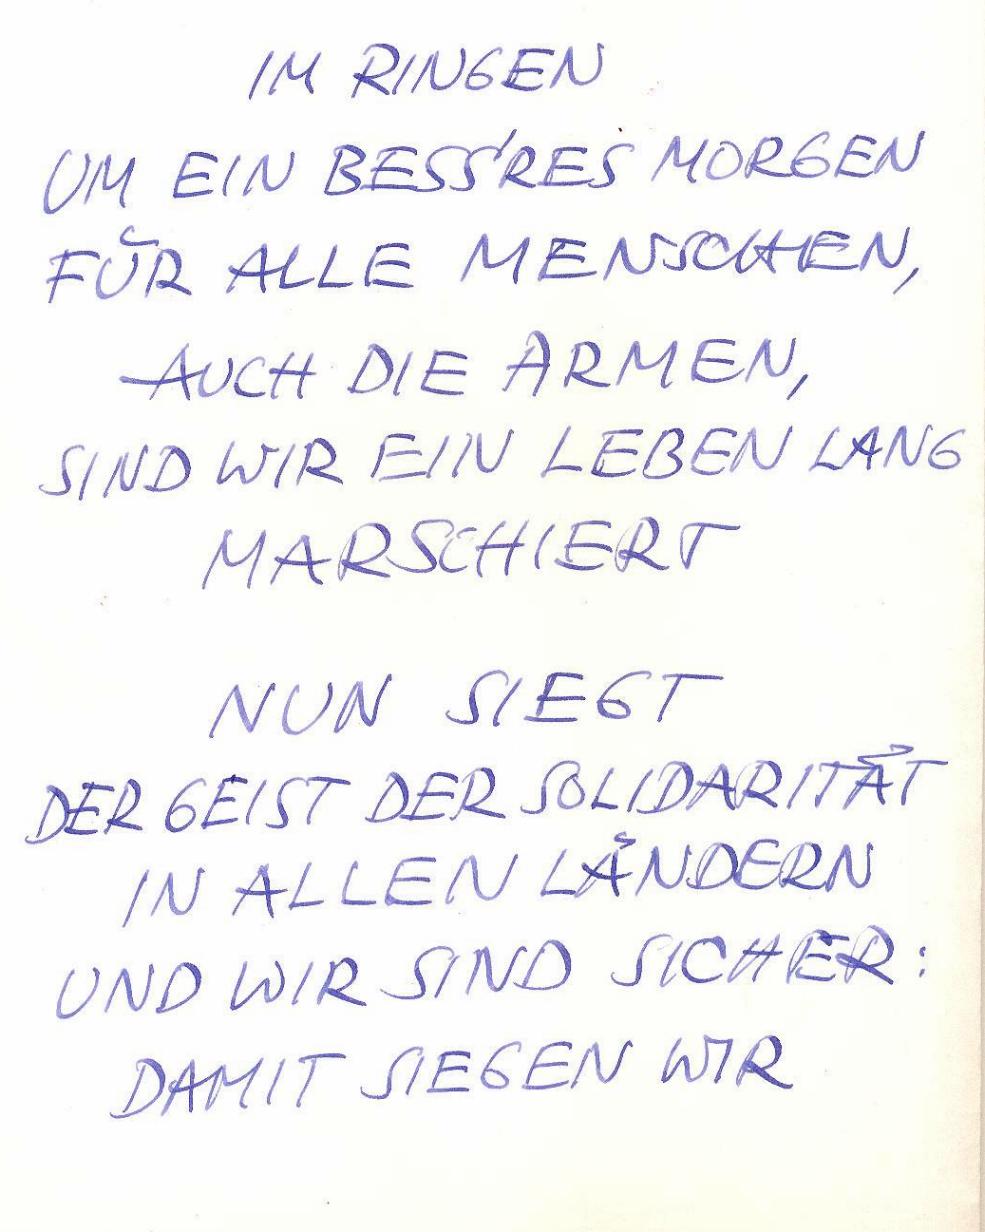 IM RINGEN
UM EIN BESS'RES MORGEN
FÜR ALLE MENSCHEN,
AUCH DIE ARMEN,
SIND WIR EIN LEBEN LANG
MARSCHIERT
NUN SIEGT
DER GEIST DER SOLIDARITÄT
IN ALLEN LÄNDERN
UND WIR SIND SICHER:
DAMIT SIEGEN WIR